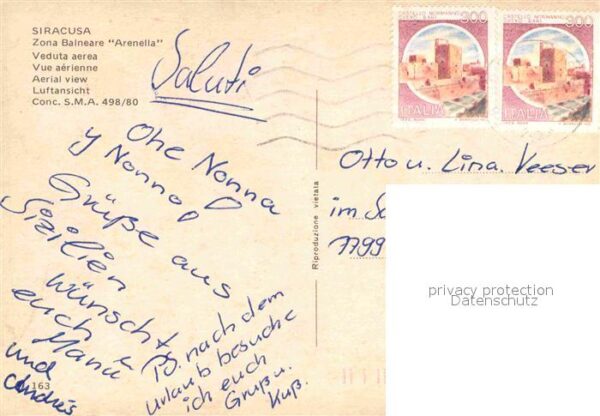 SIRACUSA
Zona Balneare "Arenella"
Veduta aerea
Vue aérienne
Aerial view
Luftansicht
Conc. S.M.A. 498/80
Saluti
Ohe Nonna
y Nonno
Grüße aus
Sizilien
wünscht
euch
Manü
und
Andrés
PS. nach dem
Urlaub besuche
ich euch
Gruß u.
Kuß.
163
Riproduzione vietata
CASTELLO NORMANNO
SVEVO BARI
300
ITALIA
CASTELLO NORMANNO
SVEVO BARI
300
ITALIA
Otto u. Lina Veeser
im
7799
privacy protection
Datenschutz